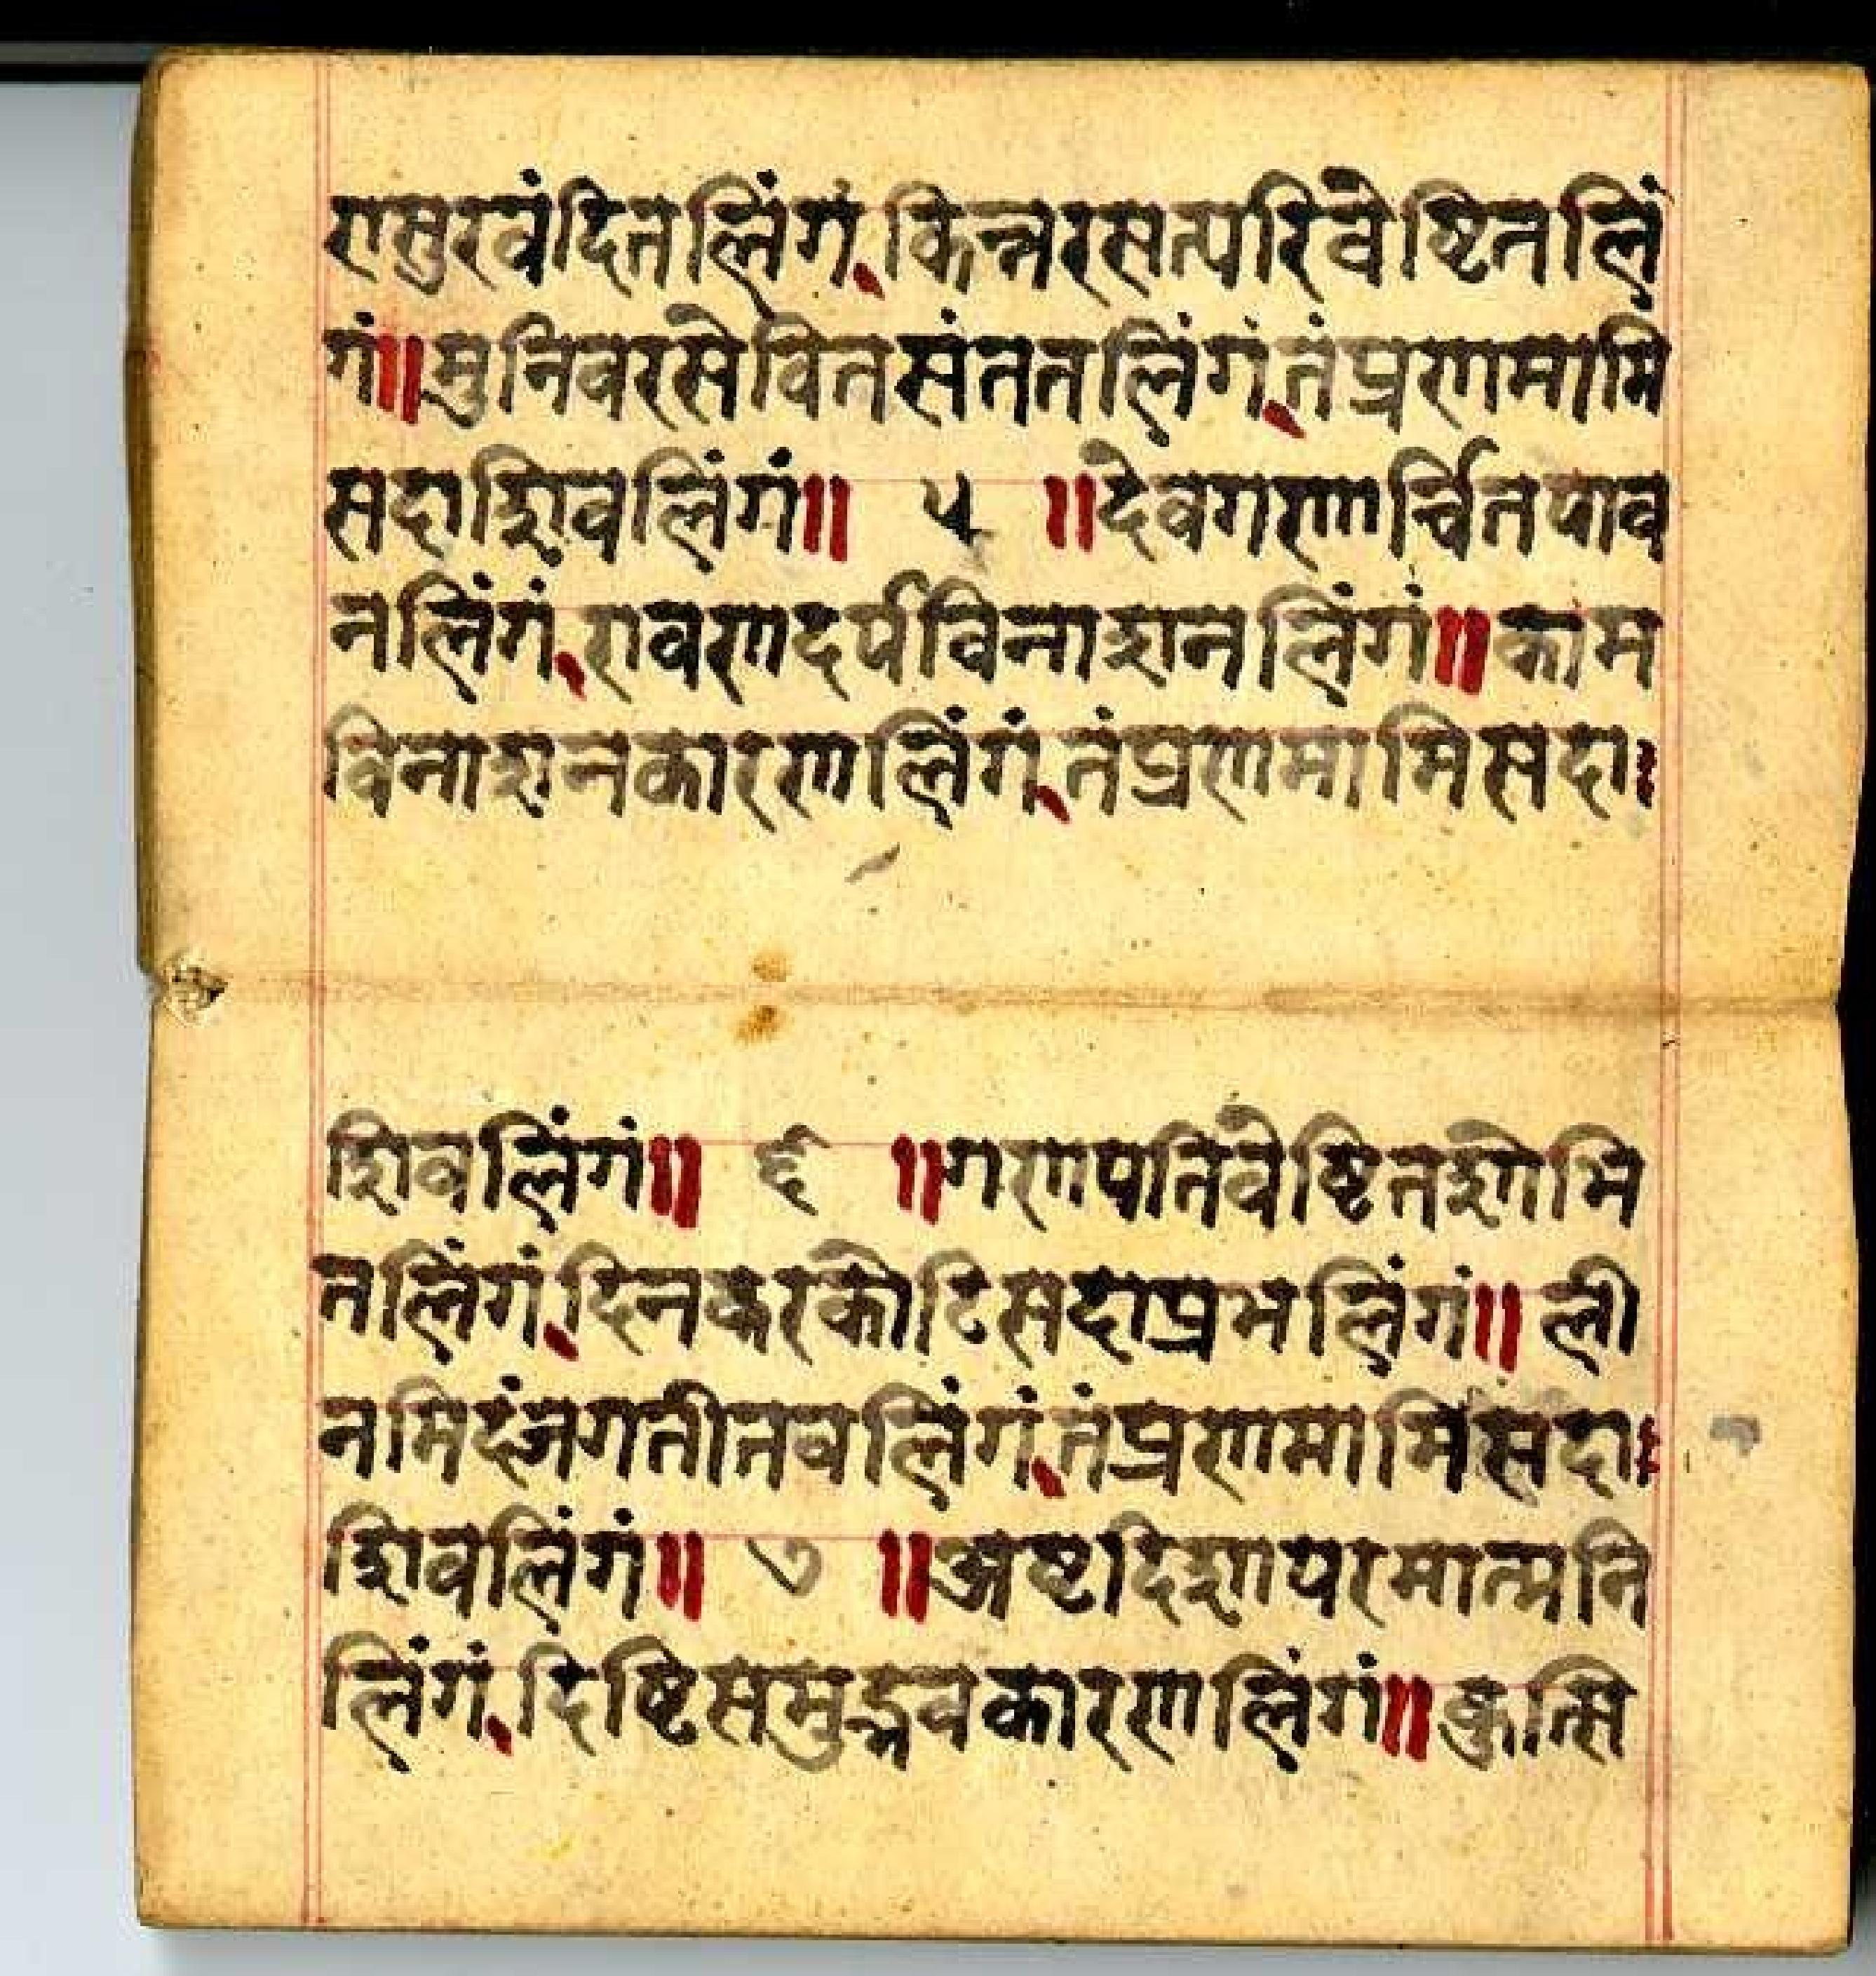 णसुरवंदितलिंगं, किन्नरसत्परिवेष्टितलिं
गं॥मुनिवरसेवितसंततलिंगं, तंप्रणमामि
सदाशिवलिंगं॥ ५ ॥देवगणार्चितपाव
नलिंगं, रावणदर्पविनाशनलिंगं॥काम
विनाशनकारणलिंगं, तंप्रणमामिसदाः
शिवलिंगं॥ ६ ॥गणपतिवेष्टितशोभि
तलिंगं, दिनकरकोटिसदाप्रभलिंगं॥ली
नमिदंजगतीतवलिंगं, तंप्रणमामिसदाः
शिवलिंगं॥ ७ ॥अष्टादिशापरमात्मनि
लिंगं, दिष्टिसमुद्भवकारणलिंगं॥कुत्सि